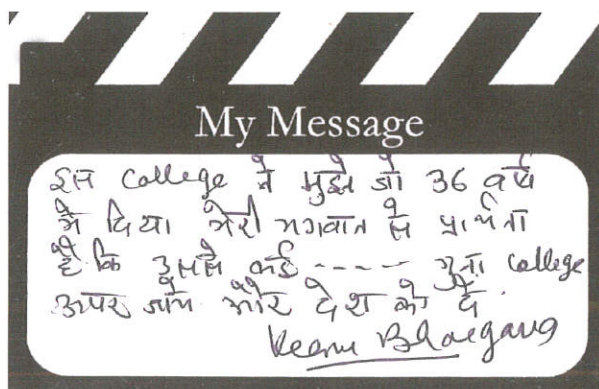 My Message
इस College ने मुझे जो 36 वर्ष
में दिया मेरी भगवान से प्रार्थना
है कि उससे कई ---- गुना College
ऊपर जाये और देश को दें.
Veenu Bhargava